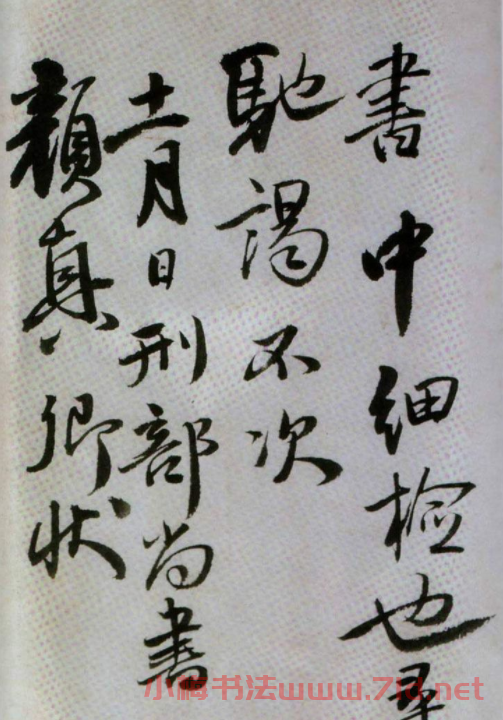 書中細檢也尋
馳謁不次
十一月日刑部尚書
顏真卿狀
小梅书法www.7id.net